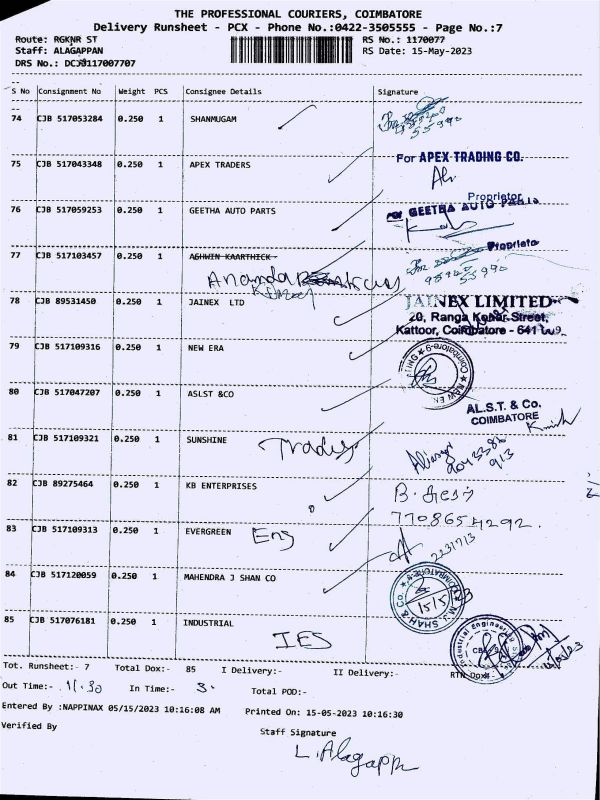 THE PROFESSIONAL COURIERS, COIMBATORE
Delivery Runsheet - PCX - Phone No.:0422-3505555 - Page No.:7
Route: RGKNR ST
RS No.: 1170077
Staff: ALAGAPPAN
RS Date: 15-May-2023
DRS No.: DCJ3117007707
S No Consignment No Weight PCS Consignee Details Signature
74 CJB 517053284 0.250 1 SHANMUGAM
55990
75 CJB 517043348 0.250 1 APEX TRADERS
For APEX TRADING CO.
Proprietor
76 CJB 517059253 0.250 1 GEETHA AUTO PARTS
For GEETHA AUTO PARTS
Proprietor
77 CJB 517103457 0.250 1 ASHWIN KAARTHICK
55990
78 CJB 89531450 0.250 1 JAINEX LTD
JAINEX LIMITED
20, Ranga Konar Street,
Kattoor, Coimbatore - 641
79 CJB 517109316 0.250 1 NEW ERA
80 CJB 517047207 0.250 1 ASLST &CO
AL.S.T. & Co.
COIMBATORE
81 CJB 517109321 0.250 1 SUNSHINE Trades
913
82 CJB 89275464 0.250 1 KB ENTERPRISES
7708654292.
83 CJB 517109313 0.250 1 EVERGREEN Eng
84 CJB 517120059 0.250 1 MAHENDRA J SHAN CO
M.J. SHAH & Co.
COIMBATORE
15/5/23
85 CJB 517076181 0.250 1 INDUSTRIAL IES
Industrial Engineering
Tot. Runsheet:- 7 Total Dox:- 85 I Delivery:- II Delivery:- RTN Dox:-
Out Time:- 11.30 In Time:- 3. Total POD:-
Entered By :NAPPINAX 05/15/2023 10:16:08 AM Printed On: 15-05-2023 10:16:30
Verified By
Staff Signature
L. Alagappn